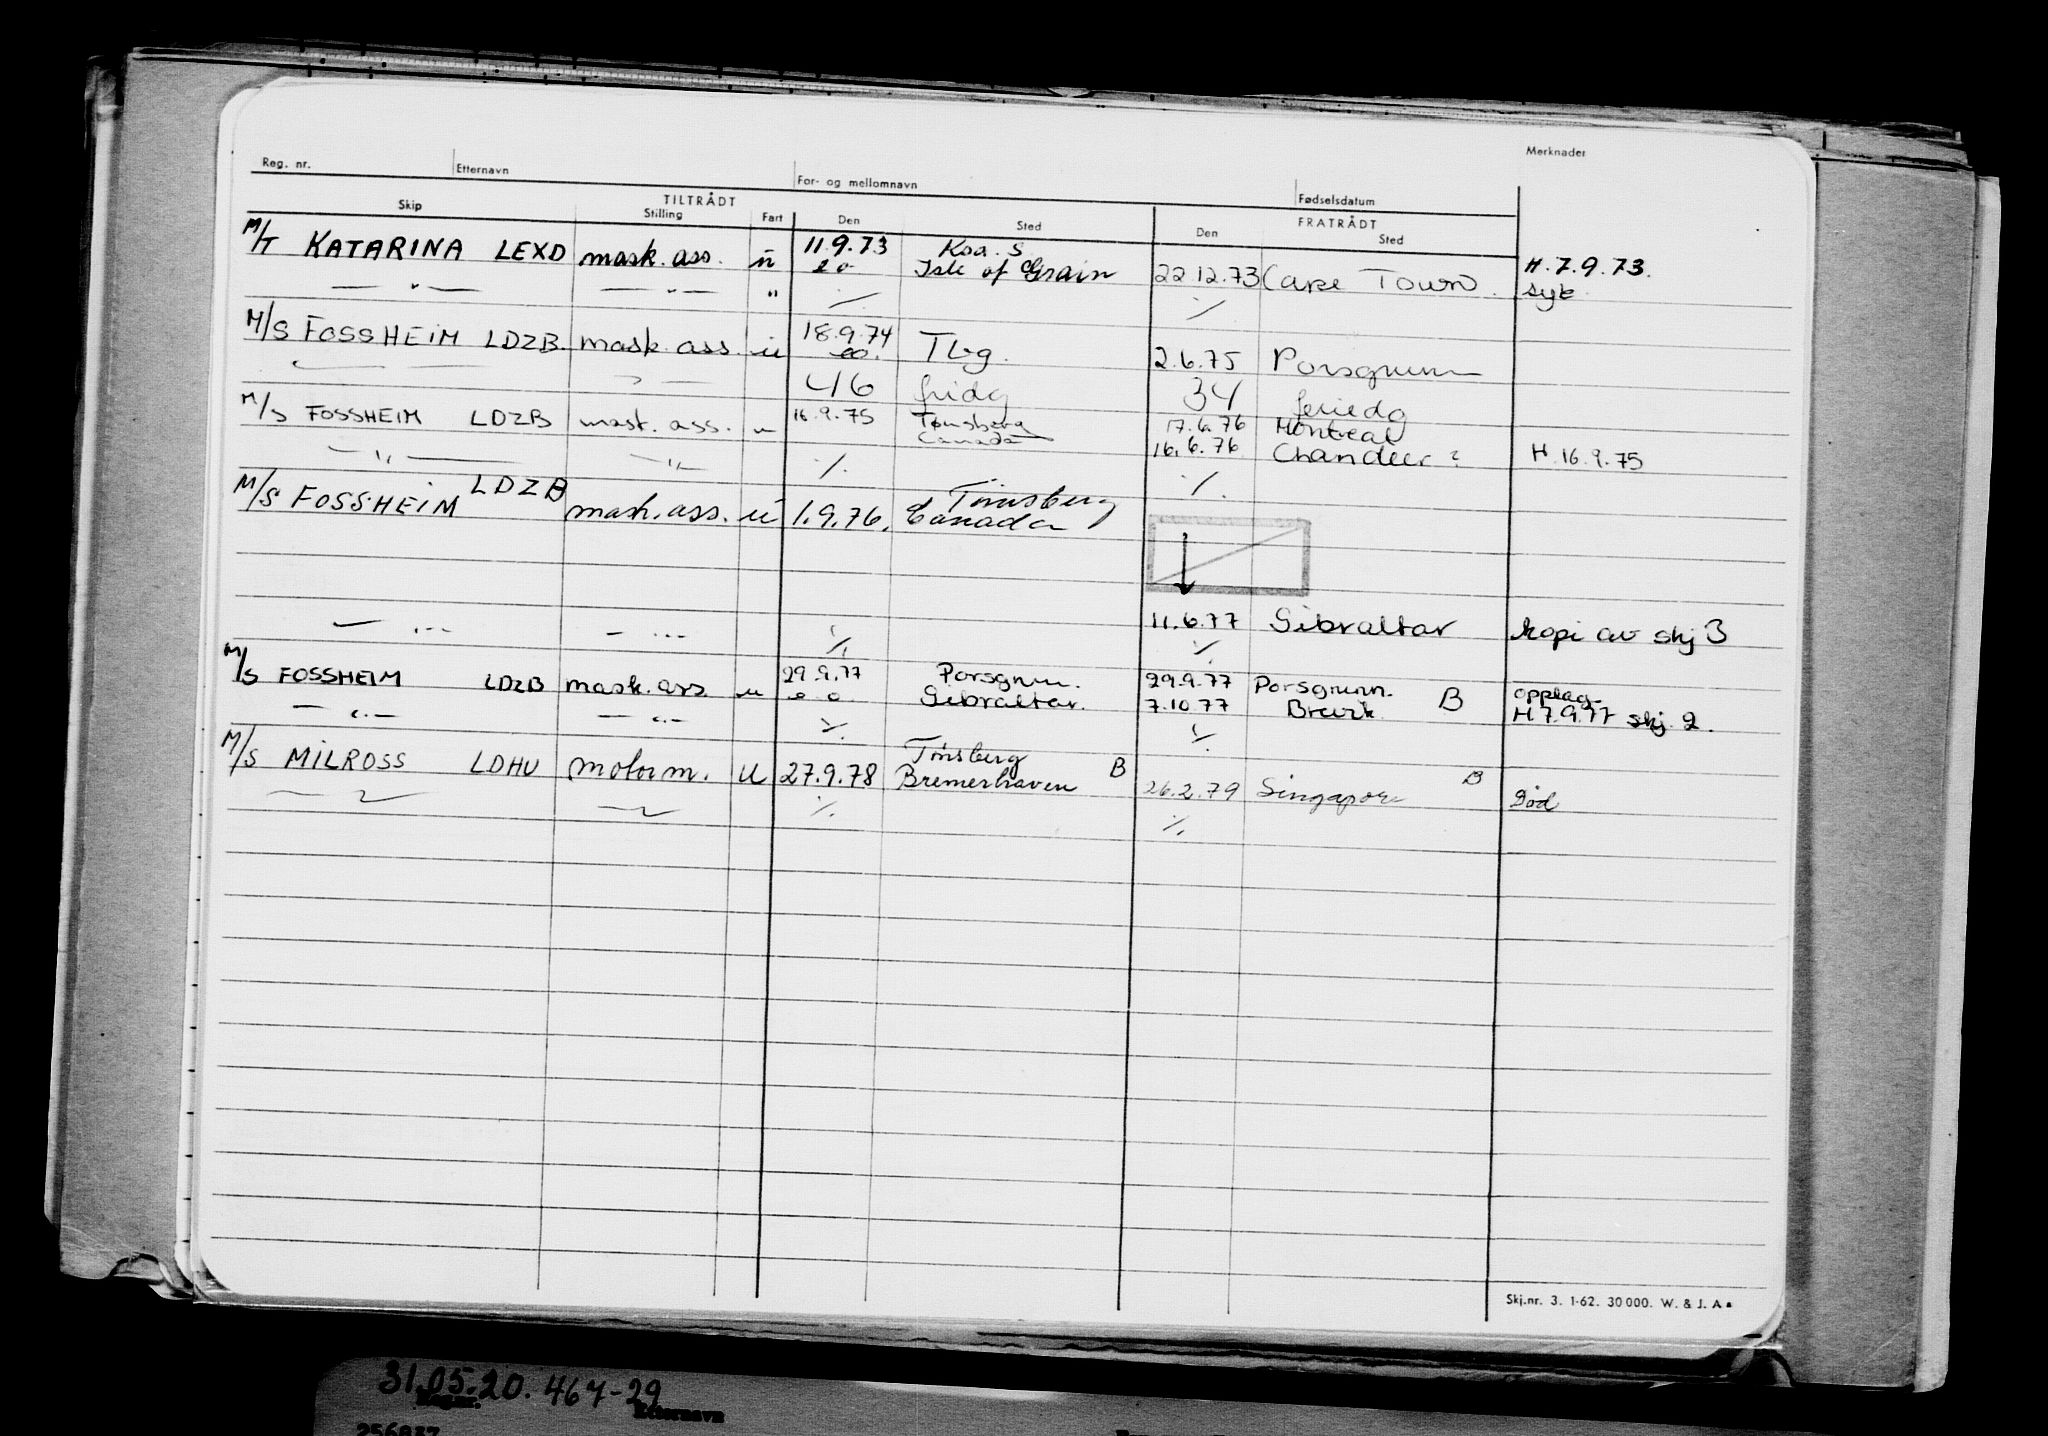 Reg. nr. Etternavn For- og mellomnavn Fødselsdatum Merknader
TILTRÅDT FRATRÅDT
Skip Stilling Fart Den Sted Den Sted
M/T KATARINA LEXD mask. ass. u 11.9.73 Kra. S
Isle of Grain 22 12.73 Cape Town H. 7.9.73.
— " — — " — " ⁒ ⁒ syk
M/S FOSSHEIM LDZB mask. ass. u 18.9.74 Tbg. 2.6.75 Porsgrunn
46 fridg 34 feriedg
M/S FOSSHEIM LDZB mask. ass. u 16.9.75 Tønsberg 17.6.76 Montreal
Canada 16.6.76 Chandler ? H. 16.9.75
— " — — " — ⁒ ⁒
M/S FOSSHEIM LDZB mask. ass. u 1.9.76. Tønsberg
Canada
11.6.77 Gibraltar kopi av skj 3
— " — — " — ⁒ ⁒
M/S FOSSHEIM LDZB mask. ass. u 29.9.77 Porsgrunn. 29.9.77 Porsgrunn. B opplag
Gibraltar. 7.10.77 Brevik H 7.9.77 skj. 2.
— " — — " — ⁒ ⁒
M/S MILROSS LDHU motorm. u 27.9.78 Tønsberg
Bremerhaven B 26.2.79 Singapore B Död
— " — — " — ⁒ ⁒
Skj.nr. 3. 1-62. 30 000. W. & J. A s
31.05.20. 467-29
Etternavn
256837